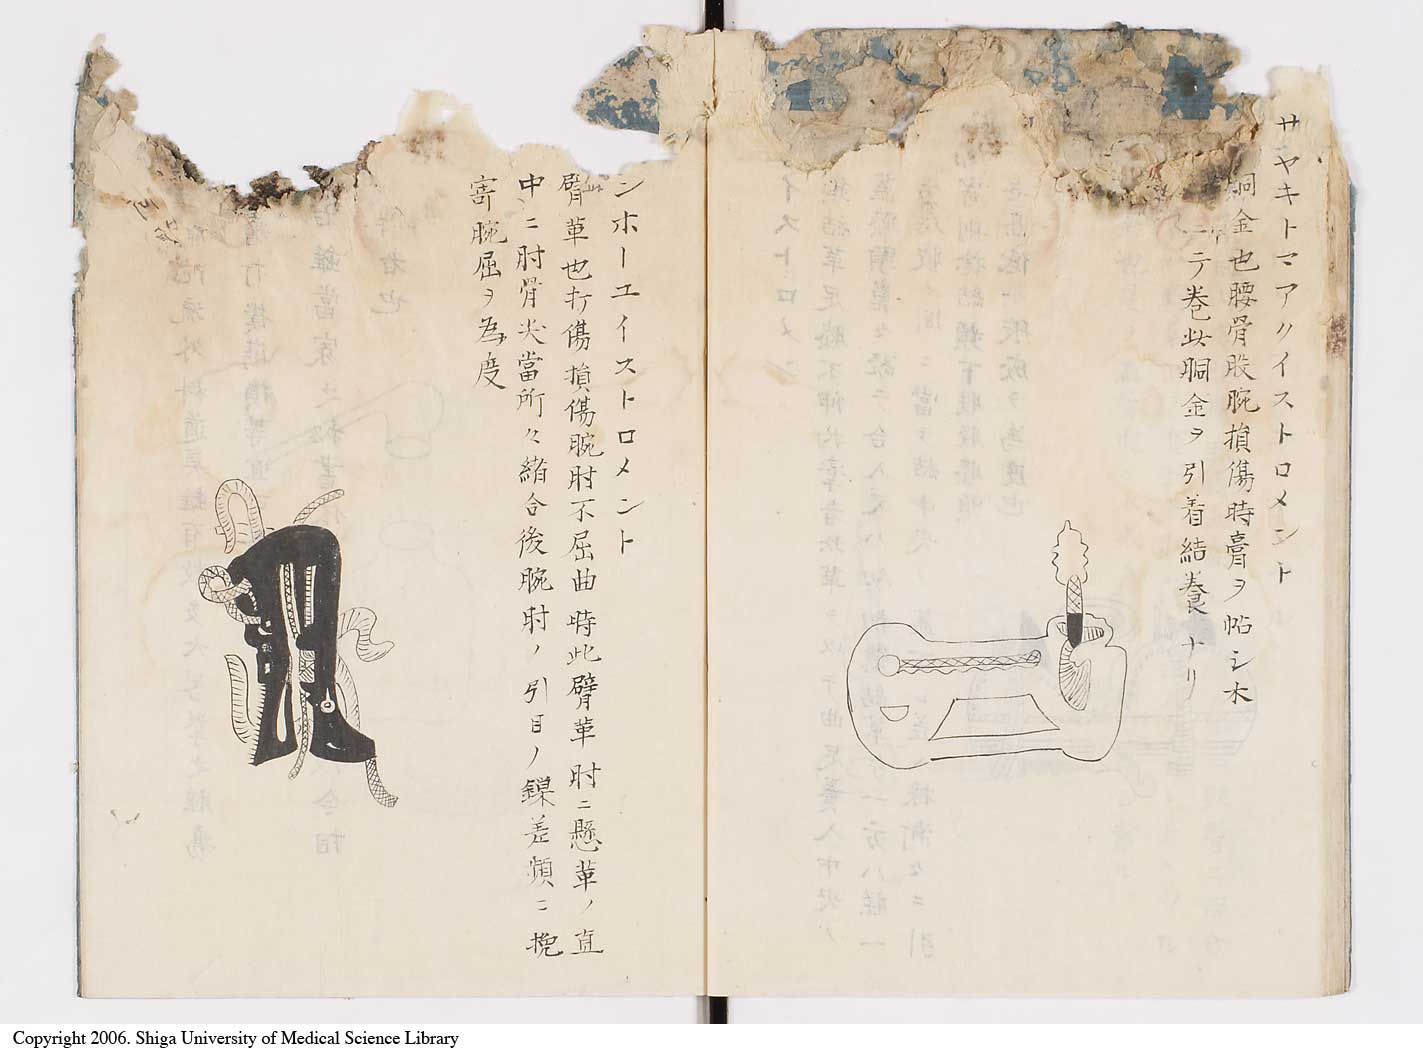 サヤキトマアノイストロメント
胴金也腰骨股腕損傷時膏ヲ帖シ木
ニテ巻此胴金ヲ引着結養ナリ
ンホーエイストロメント
臂革也打傷損傷腕肘不屈曲時此臂革肘ニ懸革ノ直
中ニ肘骨尖當所々緒合後腕肘ノ引目ノ鏁差頻ニ挽
寄腕屈ヲ為度
Copyright 2006. Shiga University of Medical Science Library